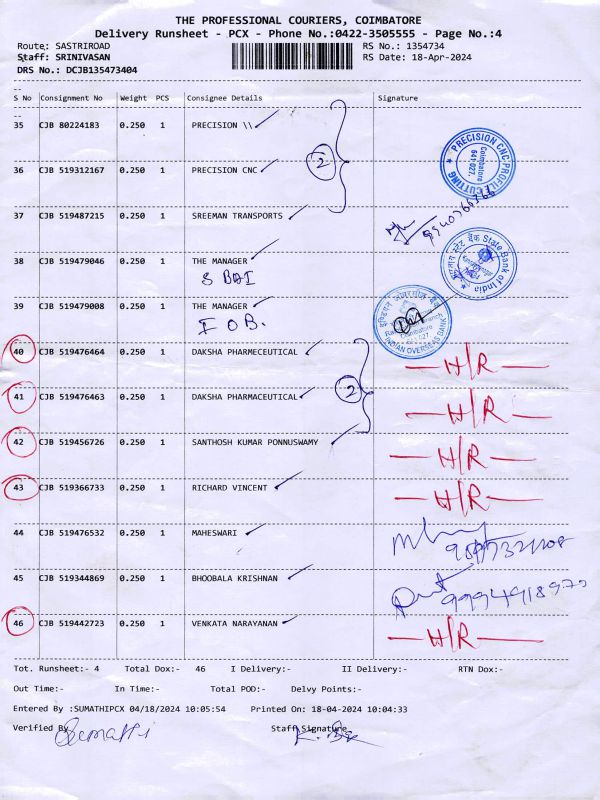 THE PROFESSIONAL COURIERS, COIMBATORE
Delivery Runsheet - PCX - Phone No.:0422-3505555 - Page No.:4
Route: SASTRIROAD RS No.: 1354734
Staff: SRINIVASAN RS Date: 18-Apr-2024
DRS No.: DCJB135473404
S No Consignment No Weight PCS Consignee Details Signature
35 CJB 80224183 0.250 1 PRECISION \\
2
36 CJB 519312167 0.250 1 PRECISION CNC
PRECISION CNC PROFILE CUTTING Coimbatore 641 027.
37 CJB 519487215 0.250 1 SREEMAN TRANSPORTS
38 CJB 519479046 0.250 1 THE MANAGER
SBI
भारतीय स्टेट बैंक State Bank of India
39 CJB 519479008 0.250 1 THE MANAGER
IOB.
INDIAN OVERSEAS BANK
40 CJB 519476464 0.250 1 DAKSHA PHARMECEUTICAL H/R
41 CJB 519476463 0.250 1 DAKSHA PHARMECEUTICAL 2 H/R
42 CJB 519456726 0.250 1 SANTHOSH KUMAR PONNUSWAMY H/R
43 CJB 519366733 0.250 1 RICHARD VINCENT H/R
44 CJB 519476532 0.250 1 MAHESWARI
45 CJB 519344869 0.250 1 BHOOBALA KRISHNAN
9994918970
46 CJB 519442723 0.250 1 VENKATA NARAYANAN H/R
Tot. Runsheet:- 4 Total Dox:- 46 I Delivery:- II Delivery:- RTN Dox:-
Out Time:- In Time:- Total POD:- Delvy Points:-
Entered By :SUMATHIPCX 04/18/2024 10:05:54 Printed On: 18-04-2024 10:04:33
Verified By Staff Signature
Sumathi